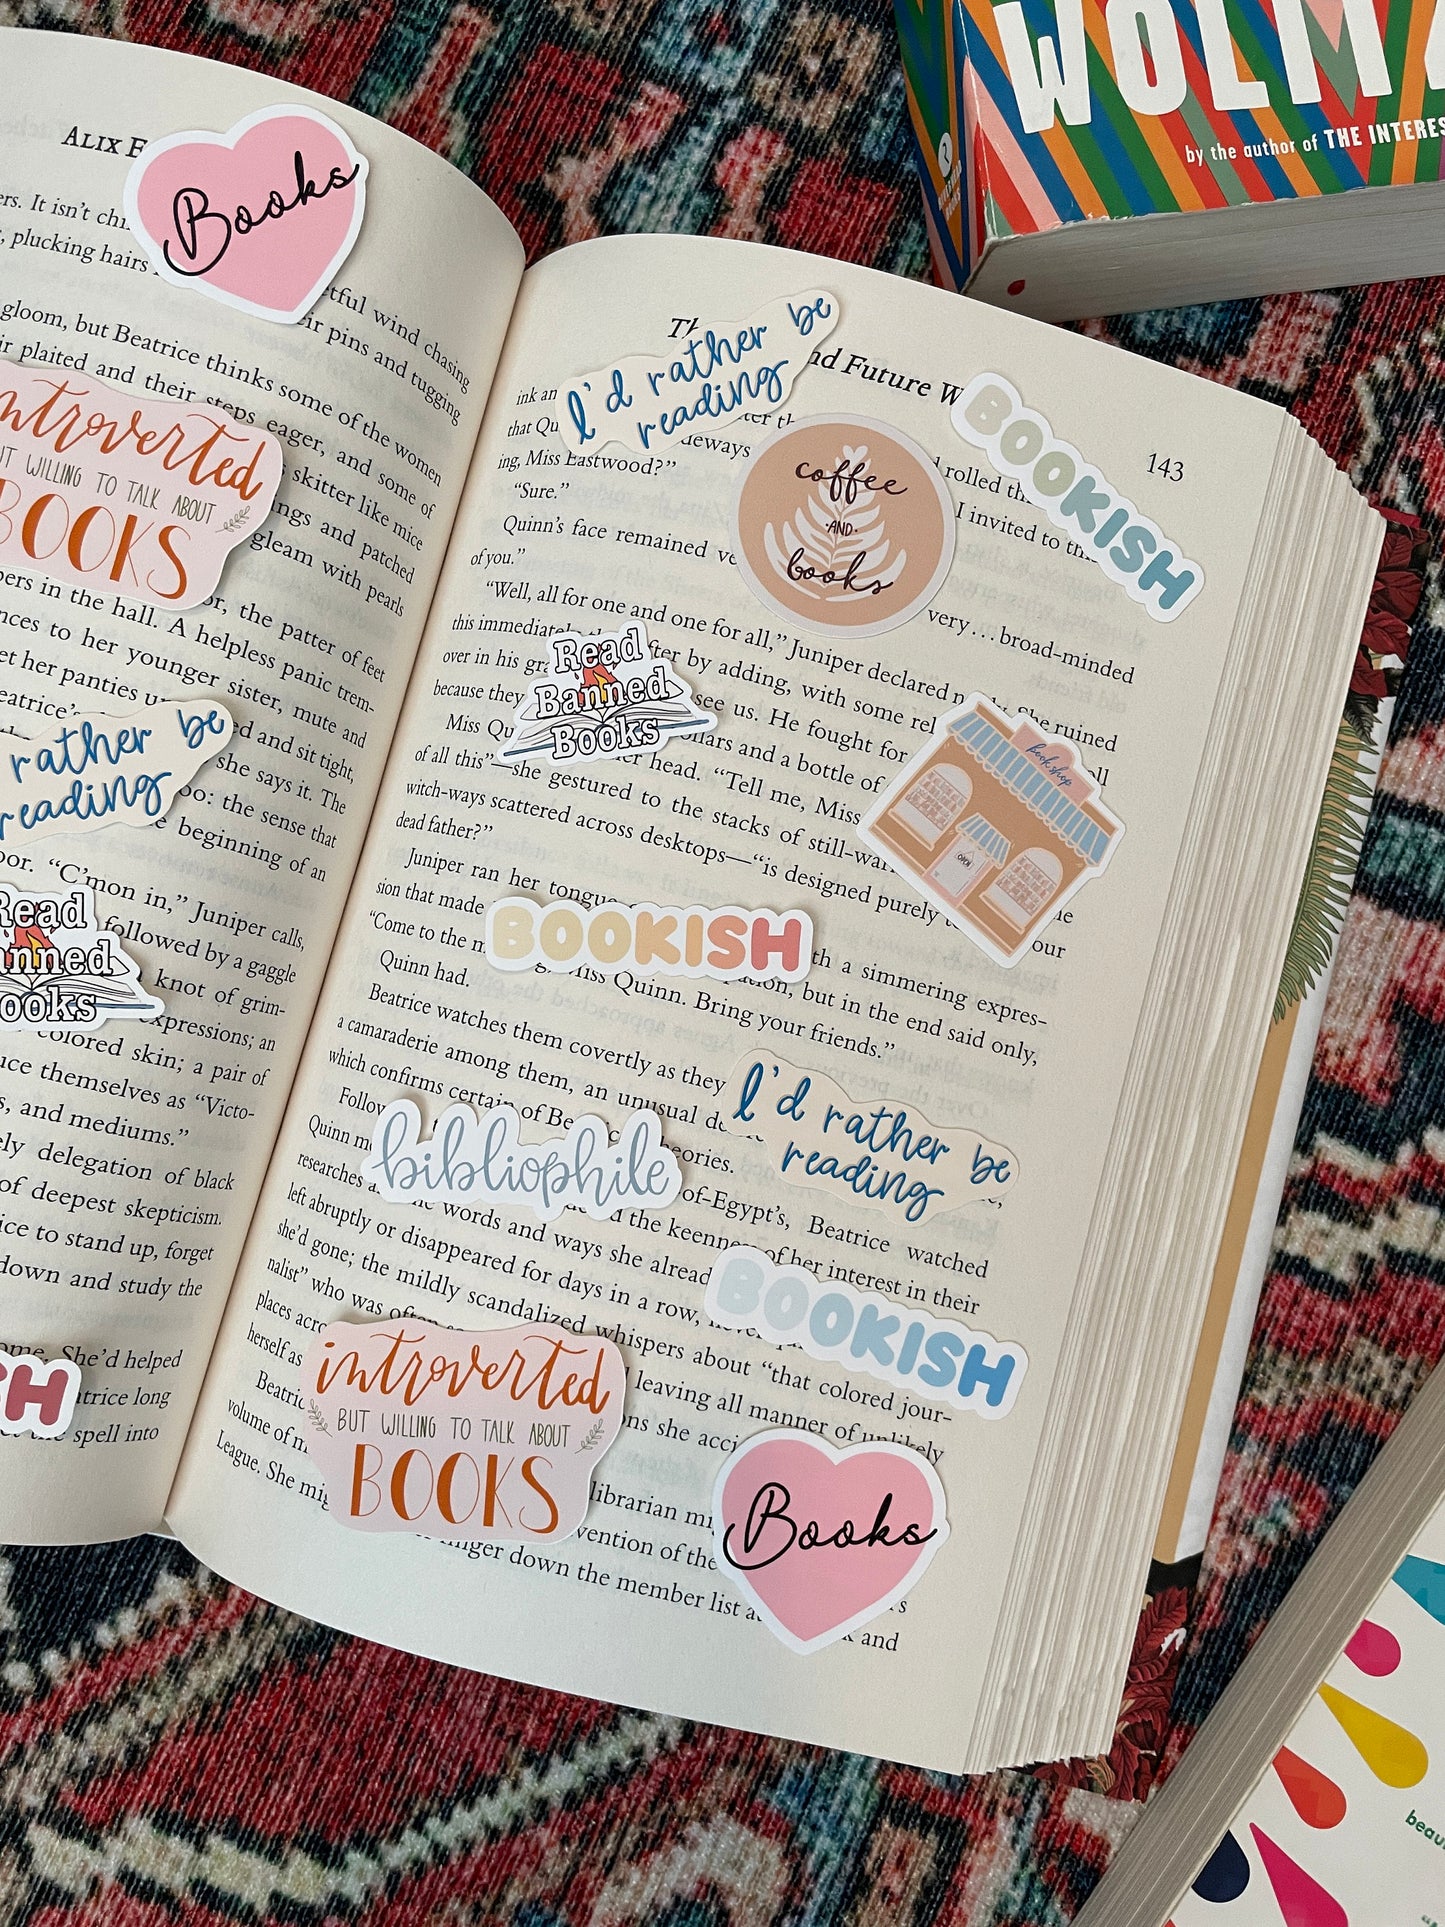 WOLITZ
by the author of THE INTERES
ALIX E
Books
ers. It isn't chi
, plucking hairs
etful wind chasing
eir pins and tugging
gloom, but Beatrice thinks some of the women
ir plaited and their steps eager, and some of
introverted
BUT WILLING TO TALK ABOUT
BOOKS
s skitter like mice
ings and patched
gleam with pearls
or, the patter of feet
pers in the hall. A helpless panic trem-
nces to her younger sister, mute and
et her panties up
ed and sit tight,
eatrice's
she says it. The
rather be
reading
oo: the sense that
e beginning of an
oor. "C'mon in," Juniper calls,
followed by a gaggle
Read
Banned
Books
knot of grim-
expressions; an
colored skin; a pair of
uce themselves as "Victo-
s, and mediums."
ely delegation of black
of deepest skepticism.
ice to stand up, forget
down and study the
ome. She'd helped
atrice long
SH
the spell into
Th
nd Future W
143
I'd rather be
reading
BOOKISH
ink an
that Qu
ter th
deways
ing, Miss Eastwood?"
rolled th
"Sure."
I invited to th
Quinn's face remained ve
very... broad-minded
of you."
coffee
·AND·
books
"Well, all for one and one for all," Juniper declared
She ruined
this immediately
fter by adding, with some rel
over in his gra
see us. He fought for
because they
ollars and a bottle of
Read
Banned
Books
bookshop
OPEN
Miss Qu
her head. "Tell me, Miss
of all this"—she gestured to the stacks of still-war
witch-ways scattered across desktops—"is designed purely t
our
dead father?"
Juniper ran her tongue
sion that made
th a simmering expres-
BOOKISH
"Come to the m
ation, but in the end said only,
g, Miss Quinn. Bring your friends."
Quinn had.
Beatrice watches them covertly as they
a camaraderie among them, an unusual de
which confirms certain of Bea
heories.
I'd rather be
reading
bibliophile
Follow
of-Egypt's, Beatrice watched
Quinn m
the keenness of her interest in their
researches a
words and ways she alread
left abruptly or disappeared for days in a row,
she'd gone; the mildly scandalized whispers about "that colored jour-
BOOKISH
nalist" who was often s
leaving all manner of unlikely
places acro
ons she acci
herself as
introverted
BUT WILLING TO TALK ABOUT
BOOKS
Beatric
librarian mi
volume of m
vention of the
League. She mig
finger down the member list a
k and
Books
beau